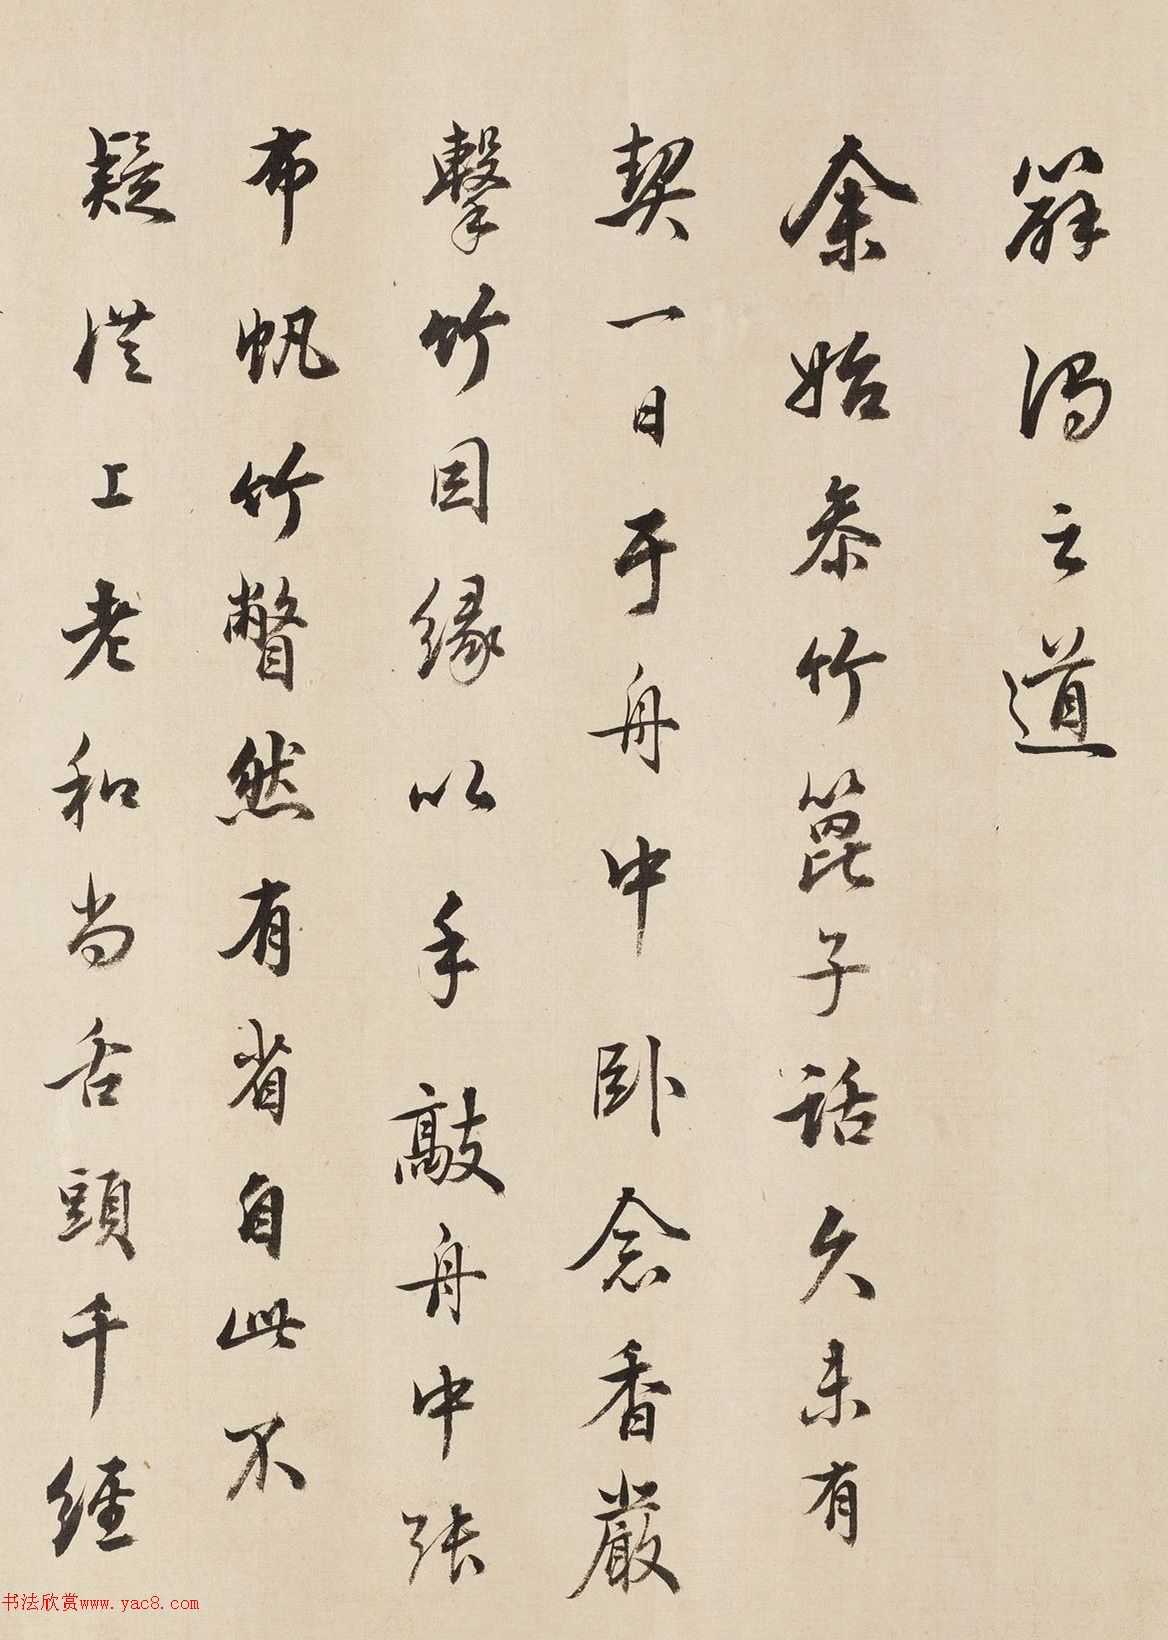 解得之道
余始參竹篦子話久未有
契一日于舟中臥念香嚴
擊竹因緣以手敲舟中張
布帆竹瞥然有省自此不
疑從上老和尚舌頭千經
书法欣赏www.yac8.com